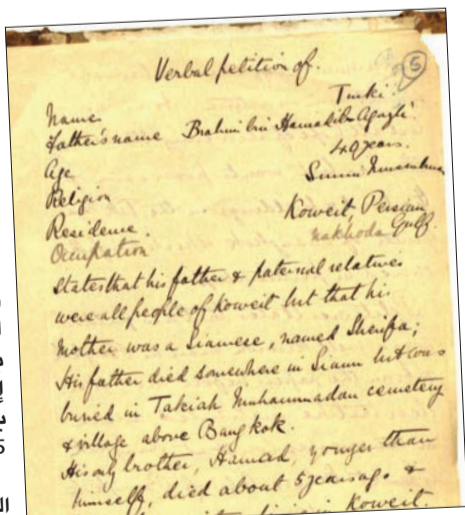 Verbal petition of.
5
Turki.
Name
Father's name Brahim bin Hamad
Age 49 years.
Religion Sunni
Residence. Koweit, Persian Gulf.
Ocupation nakhoda
states that his father & paternal relatives
were all people of Koweit but that his
Mother was a Siamese, named Sherifa;
His father died somewhere in Siam but was
buried in Takiah Muhammadan cemetery
& village above Bangkok.
His only brother, Hamad, yonger than
himself, died about 5 years ago &
Koweit.